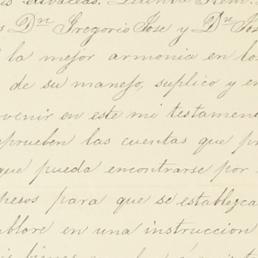 Dn Gregorio Jose y Dn Jos
la mejor armonia en los
de su manejo, suplico y en
venir en este mi testamen
prueben las cuentas que pr
que pueda encontrarse por
pesos para que se establezca
en una instruccion